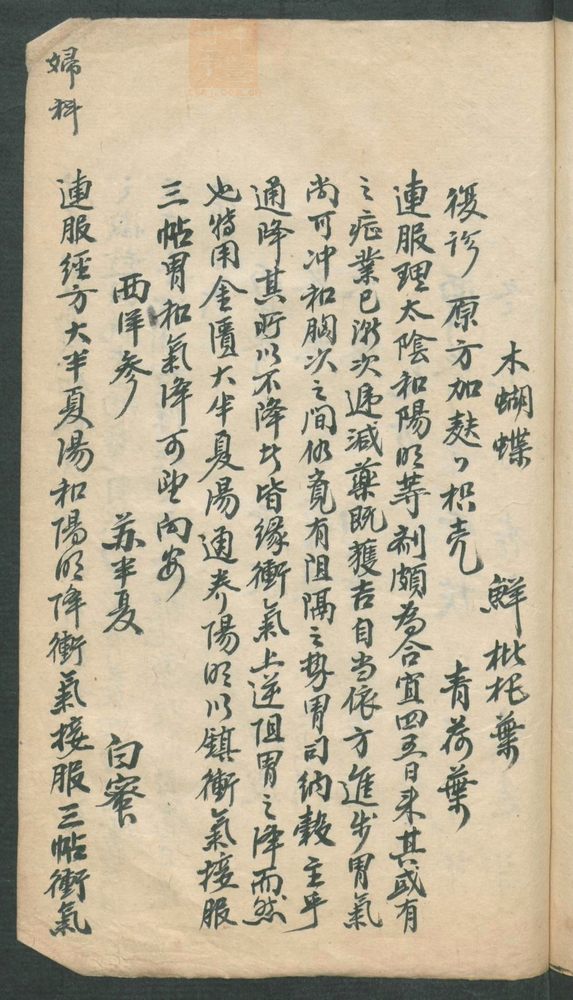 婦科
木蝴蝶 鮮枇杷葉
復診 原方加麩炒枳壳 青荷葉
連服理太陰和陽明等劑頗為合宜四五日来其或有
之症業已漸次遞減藥既獲吉自当依方進步胃氣
尚可冲和胸次之間仍覺有阻隔之勢胃司納穀主乎
通降其所以不降者皆缘衝氣上逆阻胃之降而然
也特用金匱大半夏湯通养陽明以鎮衝氣接服
三帖胃和氣降可望向安
西洋參 苏半夏 白蜜
連服經方大半夏湯和陽明降衝氣接服三帖衝氣